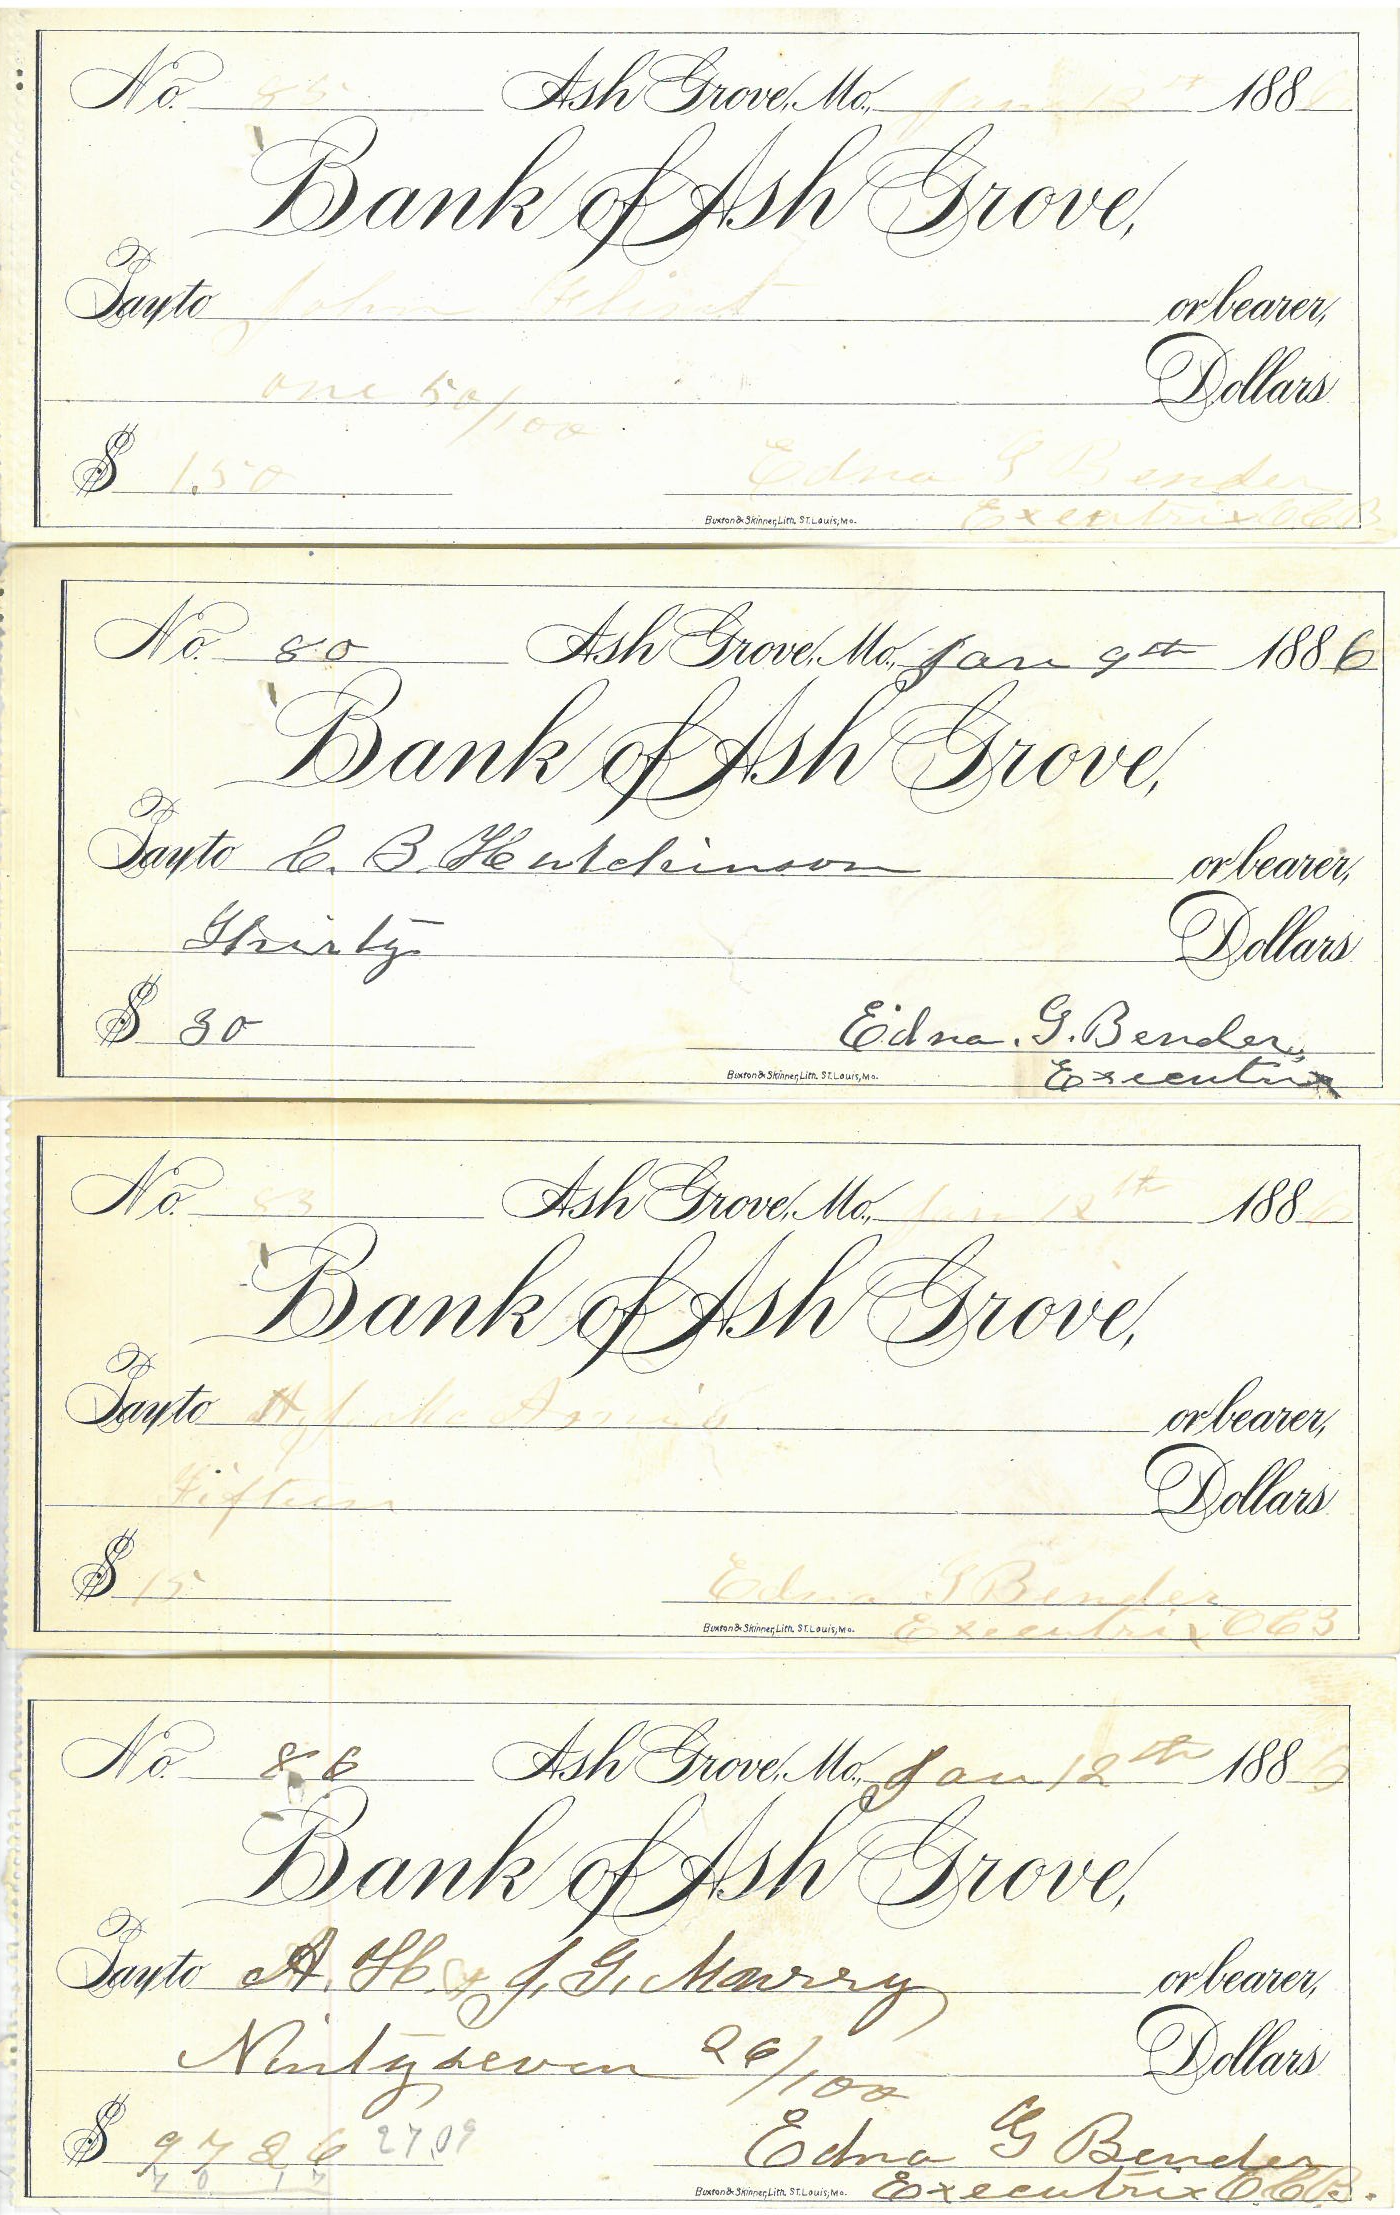 No. 85 Ash Grove, Mo., Jan 12th 1886
Bank of Ash Grove,
Pay to John Flint or bearer,
one 50/100 Dollars
$ 1.50 Edna G Bender
Buxton & Skinner, Lith. St. Louis, Mo. Executrix OCB
No. 80 Ash Grove, Mo., Jan 9th 1886
Bank of Ash Grove,
Pay to C. B. Hutchinson or bearer,
Thirty Dollars
$ 30 Edna. G. Bender,
Buxton & Skinner, Lith. St. Louis, Mo. Executrix
No. 83 Ash Grove, Mo., Jan 12th 1886
Bank of Ash Grove,
Pay to H. J. Mc or bearer,
Fifteen Dollars
$ 15 Edna G Bender
Buxton & Skinner, Lith. St. Louis, Mo. Executrix OCB
No. 86 Ash Grove, Mo., Jan 12th 1886
Bank of Ash Grove,
Pay to A. H. & J. G. Murry or bearer,
Nintyseven 26/100 Dollars
$ 97 26 27.09 Edna G Bender
70 17
Buxton & Skinner, Lith. St. Louis, Mo. Executrix OCB.